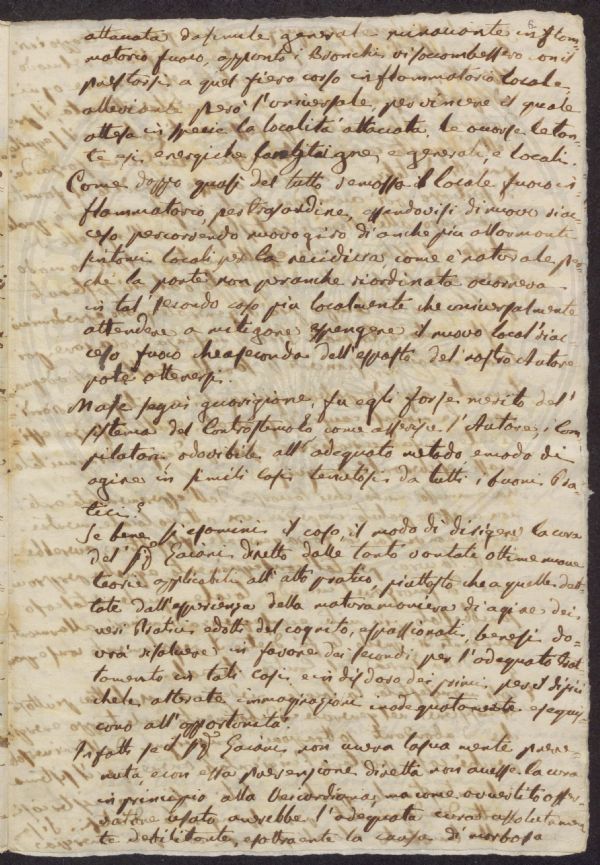 attaccata da simile generale minacciante inflam-
matorio fuoco, appunto i Bronchi vi soccombessero con il
a quel fiero corso inflammatorio locale
però l'universale, per vincere il quale
attesa in specie la località attaccata, le
te energiche e generali, e locali.
Come doppo quasi del tutto removo il locale fuoco in
flammatorio essendovisi di nuovo riac-
ceso percorrendo nuovo giro di anche più allarmanti
sintomi locali per la recidiva come è naturale per-
ché la parte non per anche riordinata occorreva
in tal secondo caso più localmente che universalmente
attendere a mitigare e spengere il nuovo local riac-
ceso fuoco che a seconda dell'esposto del nostro Autore
poté ottenersi.
Ma se seguì guarigione, fu egli forse merito del
sistema del Controstimolo come asserisce l'Autore, Com
pilatore, o dovibile all'adequato metodo e modo di
agire in simili casi tenutosi da tutti i buoni Pra-
tici?
Se bene si esamini il caso, il modo di dirigere la cura
del Sig.r Gaiani diretto dalle tanto vantate ottime nuove
teorie applicabili all'atto pratico, piuttosto che a quelle det-
tate dall'esperienza della matura maniera di agire dei
veri Pratici edotti del cognito, e spassionati, benesì do-
vrà risolvere in favore dei secondi per l'adequato trat
tamento in tali casi, e in disdoro dei primi per il di più
che le alterate immaginazioni inadequatamente esegui-
cono all'opportunità.
Infatti se il Sig.r Gaiani non aveva la sua mente preve-
nuta e con essa prevenzione diretta non avesse la cura
in principio alla Vescordiana, ma come avvertito osser-
vatore usata avrebbe l'adequata cura assolutamen
te debilitante, e sottraente la causa di morbosa